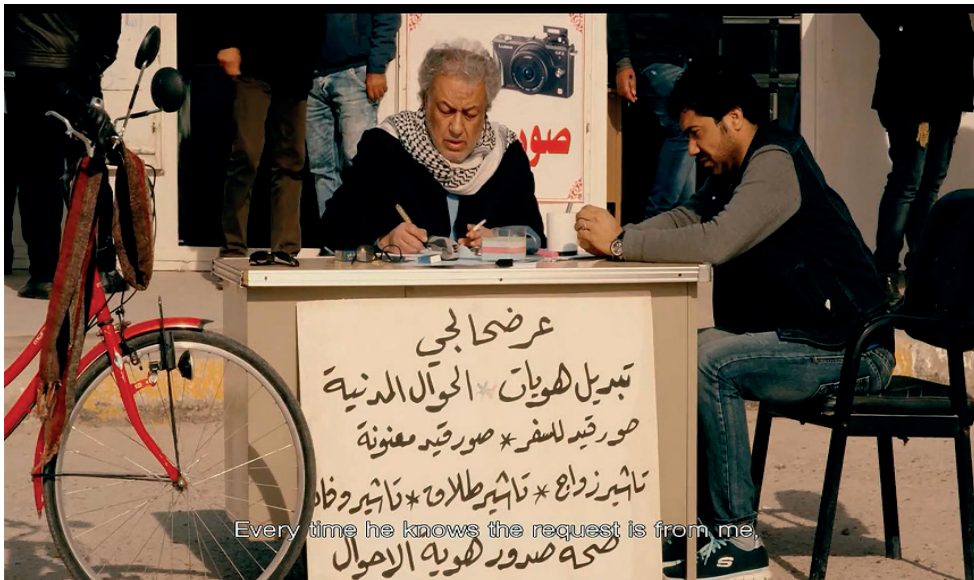 LUMIX
صور
عرضحالجي
تبديل هويات * الحوال المدنية
صور قيد للسفر * صور قيد معنونة
تاشير زواج * تاشير طلاق * تاشير وفاة
Every time he knows the request is from me,
صحة صدور هوية الاحوال
S